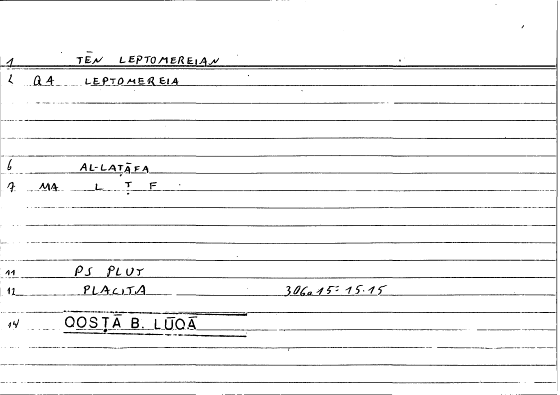 1 TĒN LEPTOMEREIAN
2 QA LEPTOMEREIA
6 AL-LAṬĀFA
7 MA L Ṭ F
11 PS PLUT
12 PLACITA 306a15=15.15
14 QOSṬĀ B. LŪQĀ